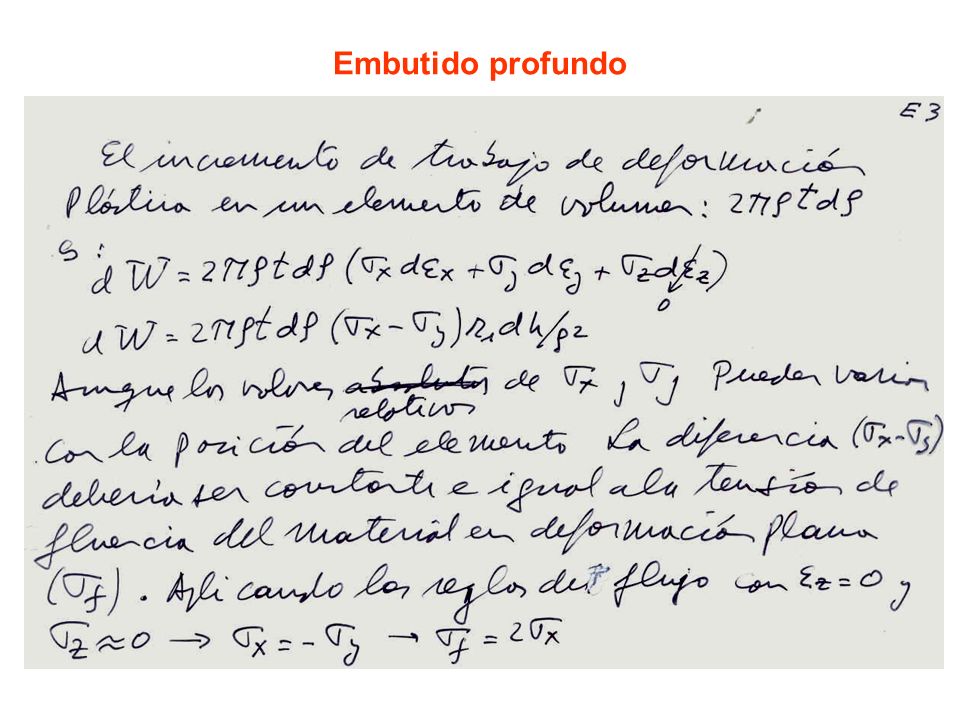 Embutido profundo
E3
El incremento de trabajo de deformación
Plástica en un elemento de volumen: 2πρtdρ
es:
dW = 2πρtdρ (σx dεx + σy dεy + σz dεz)
0
dW = 2πρtdρ (σx - σy) r1 dh/ρ2
Aunque los valores absolutos de σx y σy Pueden variar
relativos
con la posición del elemento La diferencia (σx-σy)
debería ser constante e igual a la tensión de
fluencia del material en deformación plana
(σf). Aplicando las reglas del flujo con εz=0 y
σz≈0 → σx = -σy → σf = 2σx